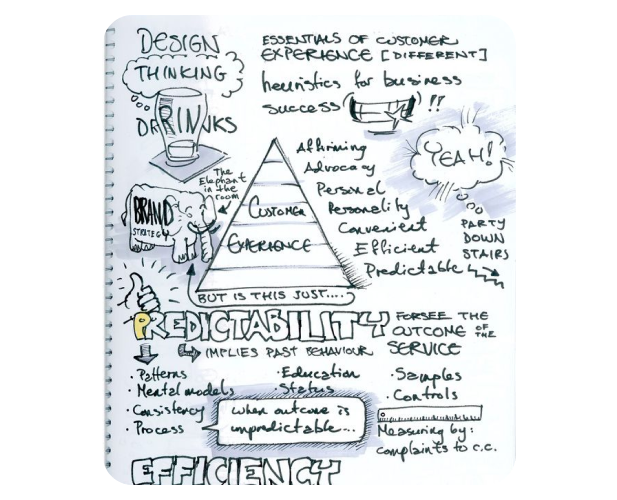 DESIGN
THINKING
DRINKS
ESSENTIALS OF CUSTOMER
EXPERIENCE [DIFFERENT]
heuristics for business
success !!
YEAH!
PARTY
DOWN
STAIRS
The
Elephant
in the
room
BRAND
STRATEGY
CUSTOMER
EXPERIENCE
Affirming
Advocacy
Personal
Personality
Convenient
Efficient
Predictable
BUT IS THIS JUST....
PREDICTABILITY
FORSEE THE
OUTCOME OF THE
SERVICE
IMPLIES PAST BEHAVIOUR
· Patterns
· Mental models
· Consistency
· Process
· Education
· Status
· Samples
· Controls
when outcome is
unpredictable...
Measuring by:
complaints to c.c.
EFFICIENCY